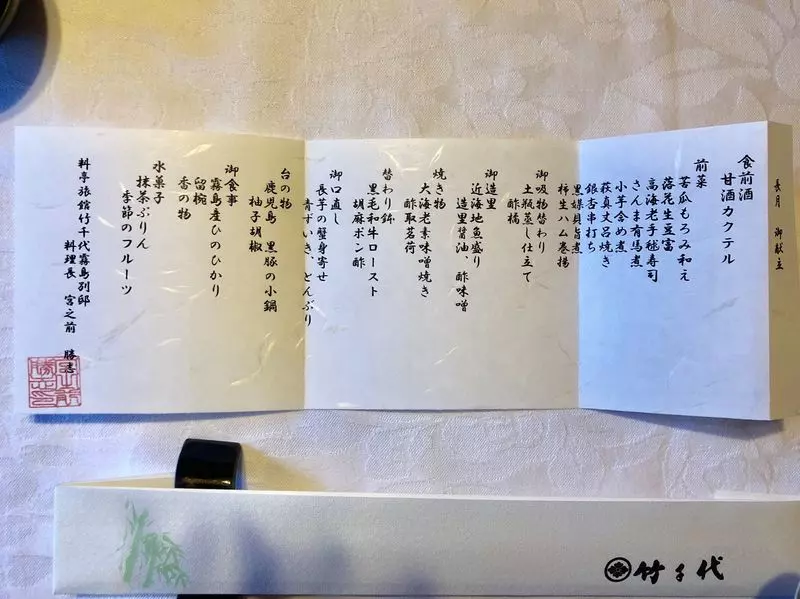 長月 御献立
食前酒
甘酒カクテル
前菜
苦瓜もろみ和え
落花生豆富
高海老手毬寿司
さんま有馬煮
小芋含め煮
萩真丈呂焼き
銀杏串打ち
黒媒貝旨煮
柿生ハム巻揚
御吸物替わり
土瓶蒸し仕立て
酢橘
御造里
近海地魚盛り
造里醤油、酢味噌
焼き物
大海老素味噌焼き
酢取茗荷
替わり鉢
黒毛和牛ロースト
胡麻ポン酢
御口直し
長芋の蟹身寄せ
青ずいき、とんぶり
台の物
鹿児島 黒豚の小鍋
柚子胡椒
御食事
霧島産ひのひかり
留椀
香の物
水菓子
抹茶ぷりん
季節のフルーツ
料亭旅館竹千代霧島別邸
料理長 宮之前 勝志
竹千代